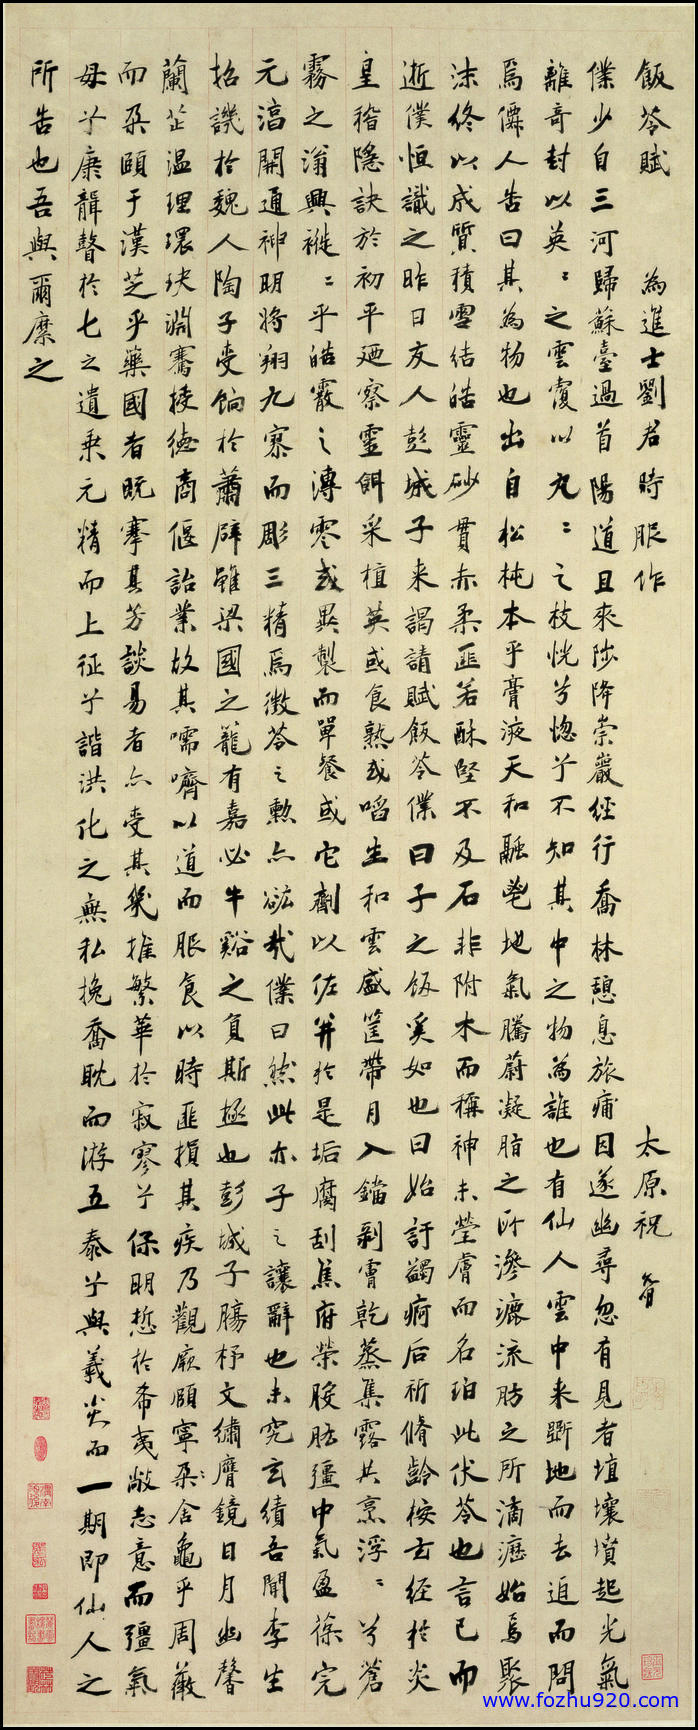 飯苓賦 為進士劉君時服作 太原祝
僕少自三河歸蘇臺過首陽道且來陟降崇巖經行喬林憩息旅痡因遂幽尋忽有見者埴壤墳起光氣
離奇封以英〻之雲覆以丸〻之枝恍兮惚兮不知其中之物為誰也有仙人雲中来斵地而去追而問
焉儛人告曰其為物也出自松杶本乎膏液天和融鬯地氣騰蔚凝脂之所滲漉流肪之所滴瀝始焉聚
沫終以成質積雪結皓靈砂貫赤柔匪若酥堅不及石非附木而稱神未瑩膚而名珀此伏苓也言已而
逝僕恒識之昨日友人彭城子来謁請賦飯苓僕曰子之飯奚如也曰始訏蠲痾后祈脩齡桉玄經於炎
皇稽隱訣於初平廼察靈餌采植英或食熟或啗生和雲盛筐帶月入鐺剥膚乾蒸集露共烹浮〻兮蒼
霧之滃興褷〻乎皓霰之漙零或異製而單餐或它劑以佐并於是垢腐刮焦府榮胺胠彊中氣盈葆完
元滈開通神明將翔九寮而彫三精焉徴苓之勲亦紘哉僕曰然此亦子之讓辭也未究玄績吾聞李生
招譏於魏人陶子受餉於蕭辟雖梁國之籠有嘉必牛谿之負斯極也彭城子膓杼文繡膺鏡日月幽馨
蘭芷温理環玦淵騫授徳商偃詒業故其嚅嚌以道而服食以時匪損其疾乃觀厥頤寧朶舍龜乎周薇
而朶頤于漢芝乎藥國者既搴其芳談易者亦受其幾推繁華於寂寥兮保明悊於希夷敞志意而彊氣
毋兮康韻聲於七之遺乘元精而上征兮諧洪化之無私挽喬眈而游五泰兮與羲炎而一期即仙人之
所告也吾與爾縻之
www.fozhu920.com